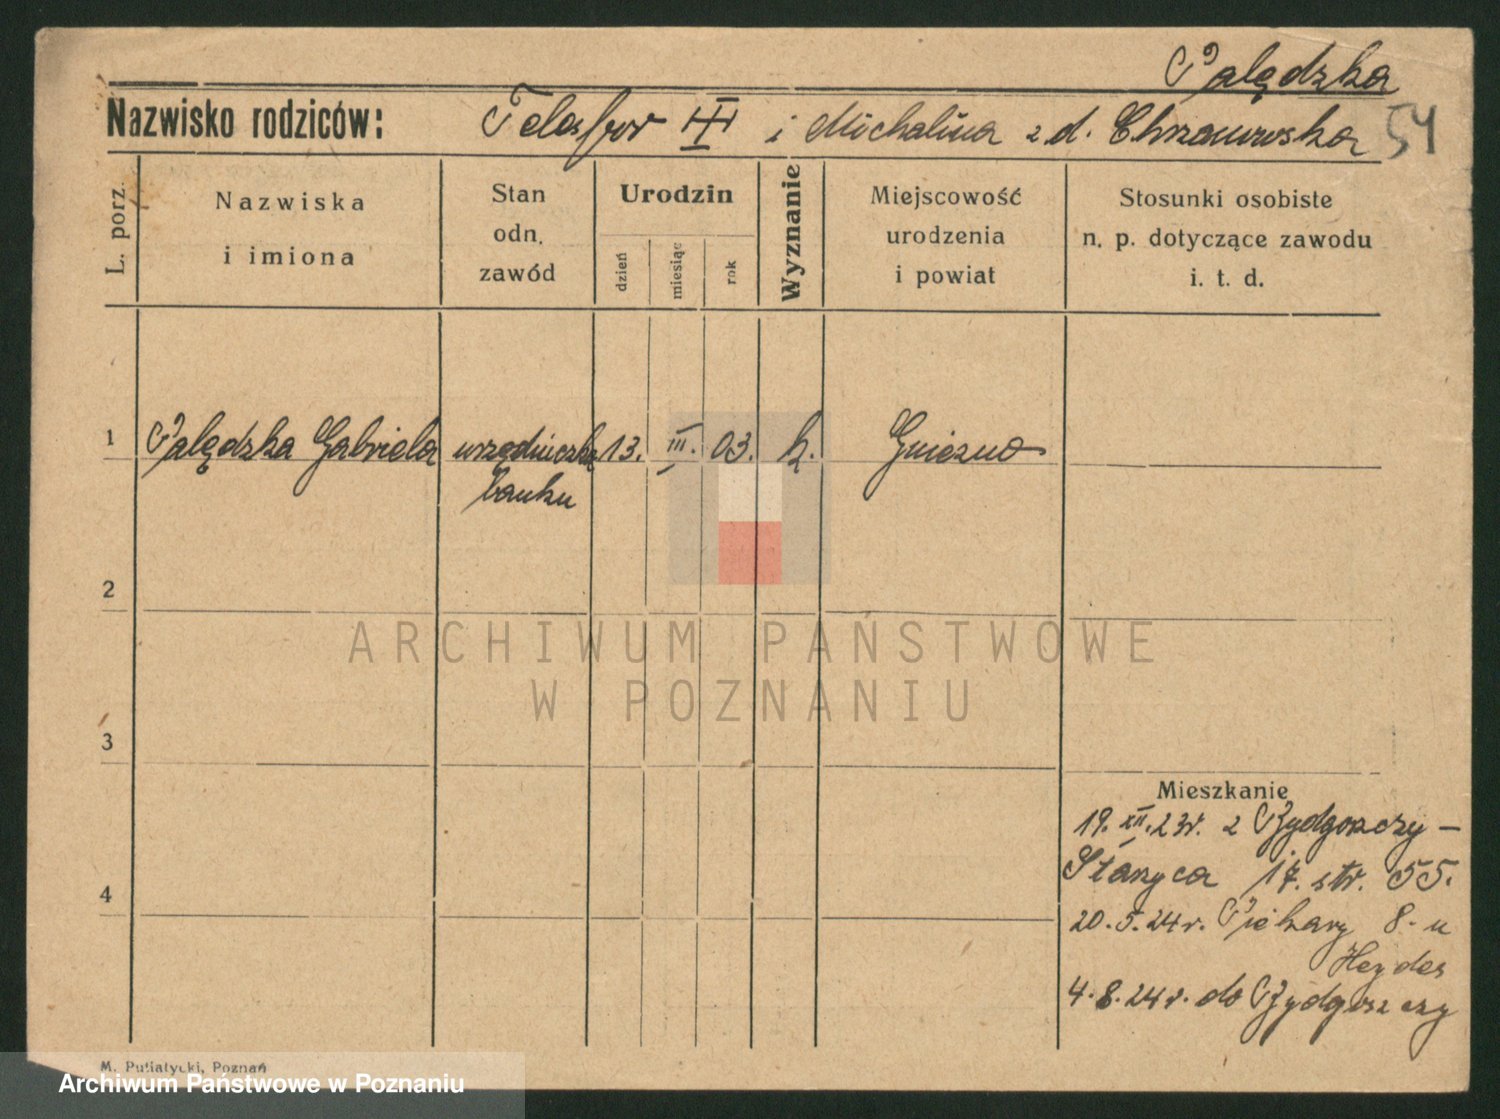 Palędzka
Nazwisko rodziców: Telesfor i Michalina z d. Chrzanowska 54
L. porz.
Nazwiska
i imiona
Stan
odn.
zawód
Urodzin
dzień
miesiąc
rok
Wyznanie
Miejscowość
urodzenia
i powiat
Stosunki osobiste
n. p. dotyczące zawodu
i. t. d.
1 Palędzka Gabriela urzędniczka 13. III. 03. k. Gniezno
banku
2
ARCHIWUM PAŃSTWOWE
W POZNANIU
3
Mieszkanie
19. XII. 23r. z Bydgoszczy –
17. str. 55.
4
20. 5. 24r. Piekary 8. u
Heydes
4. 8. 24r. do Bydgoszczy
M. Putiatycki, Poznań
Archiwum Państwowe w Poznaniu